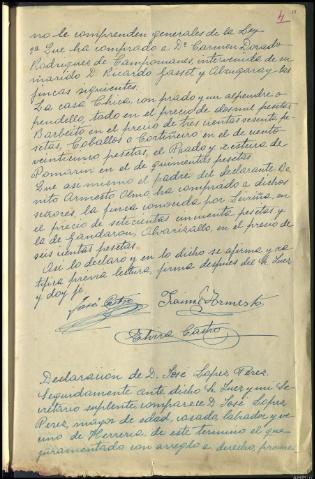 4
no le comprenden generales de la Ley
2ª Que ha comprado a Dª Carmen Dorado
Rodriguez de Campomanes, intervenida de su
marido D. Ricardo Gasset y Alzugaray las
fincas siguientes.
La casa Chica, con prado y un alpendre o
pendello, todo en el precio de dos mil pesetas
Barbeito en el precio de trescientas sesenta pe
setas, Caballos o Cortiñeiro en el de ciento
veinticinco pesetas, el Prado y restura de
Pomarin en el de quinientas pesetas
Que asi mismo el padre del declarante Be
nito Armesto Olmo ha comprado a dichos
señores la finca conocida por en
el precio de setecientas cincuenta pesetas y
la de Gandaron, en el precio de
seis cientas pesetas.
Asi lo declaro y en lo dicho se afirma y ra
tifica previa lectura, firma despues del Sr. Juez
y doy fe
José Castro Armesto
Elvira Castro
Declaracion de D. José Lopez Perez
Seguidamente ante dicho Sr. Juez y mi Se
cretario suplente comparece D. José Lopez
Perez, mayor de edad, casado labrador y ve
cino de Herreria, de este termino el que
juramentado con arreglo a derecho,